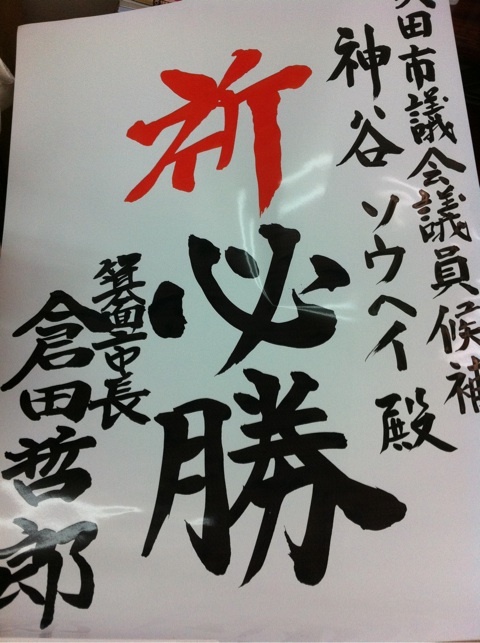 吹田市議会議員候補
神谷 ソウヘイ 殿
祈
必勝
箕面市長
倉田哲郎